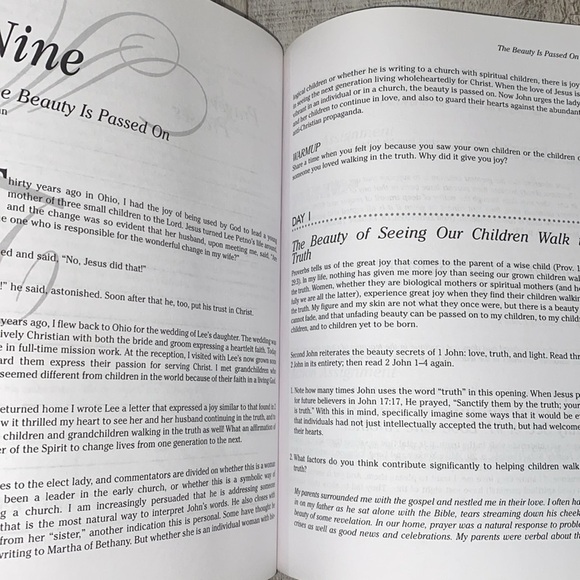 Nine
e Beauty Is Passed On
Thirty years ago in Ohio, I had the joy of being used by God to lead a young
mother of three small children to the Lord. Jesus turned Lee Petno's life around
and the change was so evident that her husband, upon meeting me, said,
e one who is responsible for the wonderful change in my wife?"
ed and said, "No, Jesus did that!"
!" he said, astonished. Soon after that he, too, put his trust in Christ.
years ago, I flew back to Ohio for the wedding of Lee's daughter. The wedding was
ively Christian with both the bride and groom expressing a heartfelt faith. Today
e in full-time mission work. At the reception, I visited with Lee's now grown sons
ard them express their passion for serving Christ. I met grandchildren who
seemed different from children in the world because of their faith in a living God.
eturned home I wrote Lee a letter that expressed a joy similar to that found in 2
w it thrilled my heart to see her and her husband continuing in the truth, and to
children and grandchildren walking in the truth as well! What an affirmation of
er of the Spirit to change lives from one generation to the next.
es to the elect lady, and commentators are divided on whether this is a woman
been a leader in the early church, or whether this is a symbolic way of
g a church. I am increasingly persuaded that he is addressing someone
that is the most natural way to interpret John's words. He also closes with
from her "sister," another indication this is personal. Some have thought
writing to Martha of Bethany. But whether she is an individual woman with
The Beauty Is Passed On
logical children or whether he is writing to a church with spiritual children, there is joy
in seeing the next generation living wholeheartedly for Christ. When the love of Jesus is
vibrant in an individual or in a church, the beauty is passed on. Now John urges the lady
and her children to continue in love, and also to guard their hearts against the abundant
anti-Christian propaganda.
WARMUP
Share a time when you felt joy because you saw your own children or the children of
someone you loved walking in the truth. Why did it give you joy?
DAY 1
The Beauty of Seeing Our Children Walk
Truth
Proverbs tells us of the great joy that comes to the parent of a wise child (Prov. 1
29:3). In my life, nothing has given me more joy than seeing our grown children walk
the truth. Women, whether they are biological mothers or spiritual mothers (and ho
fully we are all the latter), experience great joy when they find their children walkin
the truth. My figure and my skin are not what they once were, but there is a beauty
cannot fade, and that unfading beauty can be passed on to my children, to my child
children, and to children yet to be born.
Second John reiterates the beauty secrets of 1 John: love, truth, and light. Read thr
2 John in its entirety; then read 2 John 1–4 again.
1. Note how many times John uses the word "truth" in this opening. When Jesus p
for future believers in John 17:17, He prayed, "Sanctify them by the truth; your
is truth." With this in mind, specifically imagine some ways that it would be e
that individuals had not just intellectually accepted the truth, but had welcome
their hearts.
2. What factors do you think contribute significantly to helping children walk
truth?
My parents surrounded me with the gospel and nestled me in their love. I often ha
in on my father as he sat alone with the Bible, tears streaming down his cheek
beauty of some revelation. In our home, prayer was a natural response to proble
crises as well as good news and celebrations. My parents were verbal about th